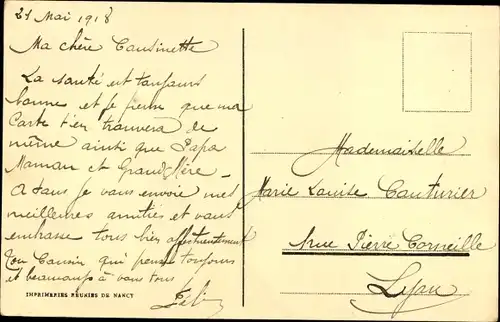 21 Mai 1918
Ma chère Cousinette
La santé est toujours
bonne et je pense que ma
Carte t'en trouvera de
même ainsi que Papa
Maman et Grand Mère -
A tous je vous envoie mes
meilleures amitiés et vous
embrasse tous bien affectueusement
Ton Cousin qui pense toujours
et beaucoup à vous tous
IMPRIMERIES RÉUNIES DE NANCY
Mademoiselle
Marie Louise Couturier
rue Pierre Corneille
Lyon